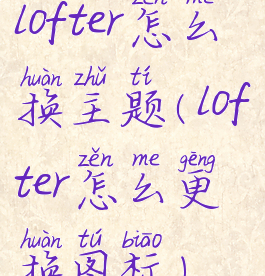 lofter怎么
huàn zhǔ tí
换主题(lof
zěn me gēng
ter怎么更
huàn tú biāo
换图标)